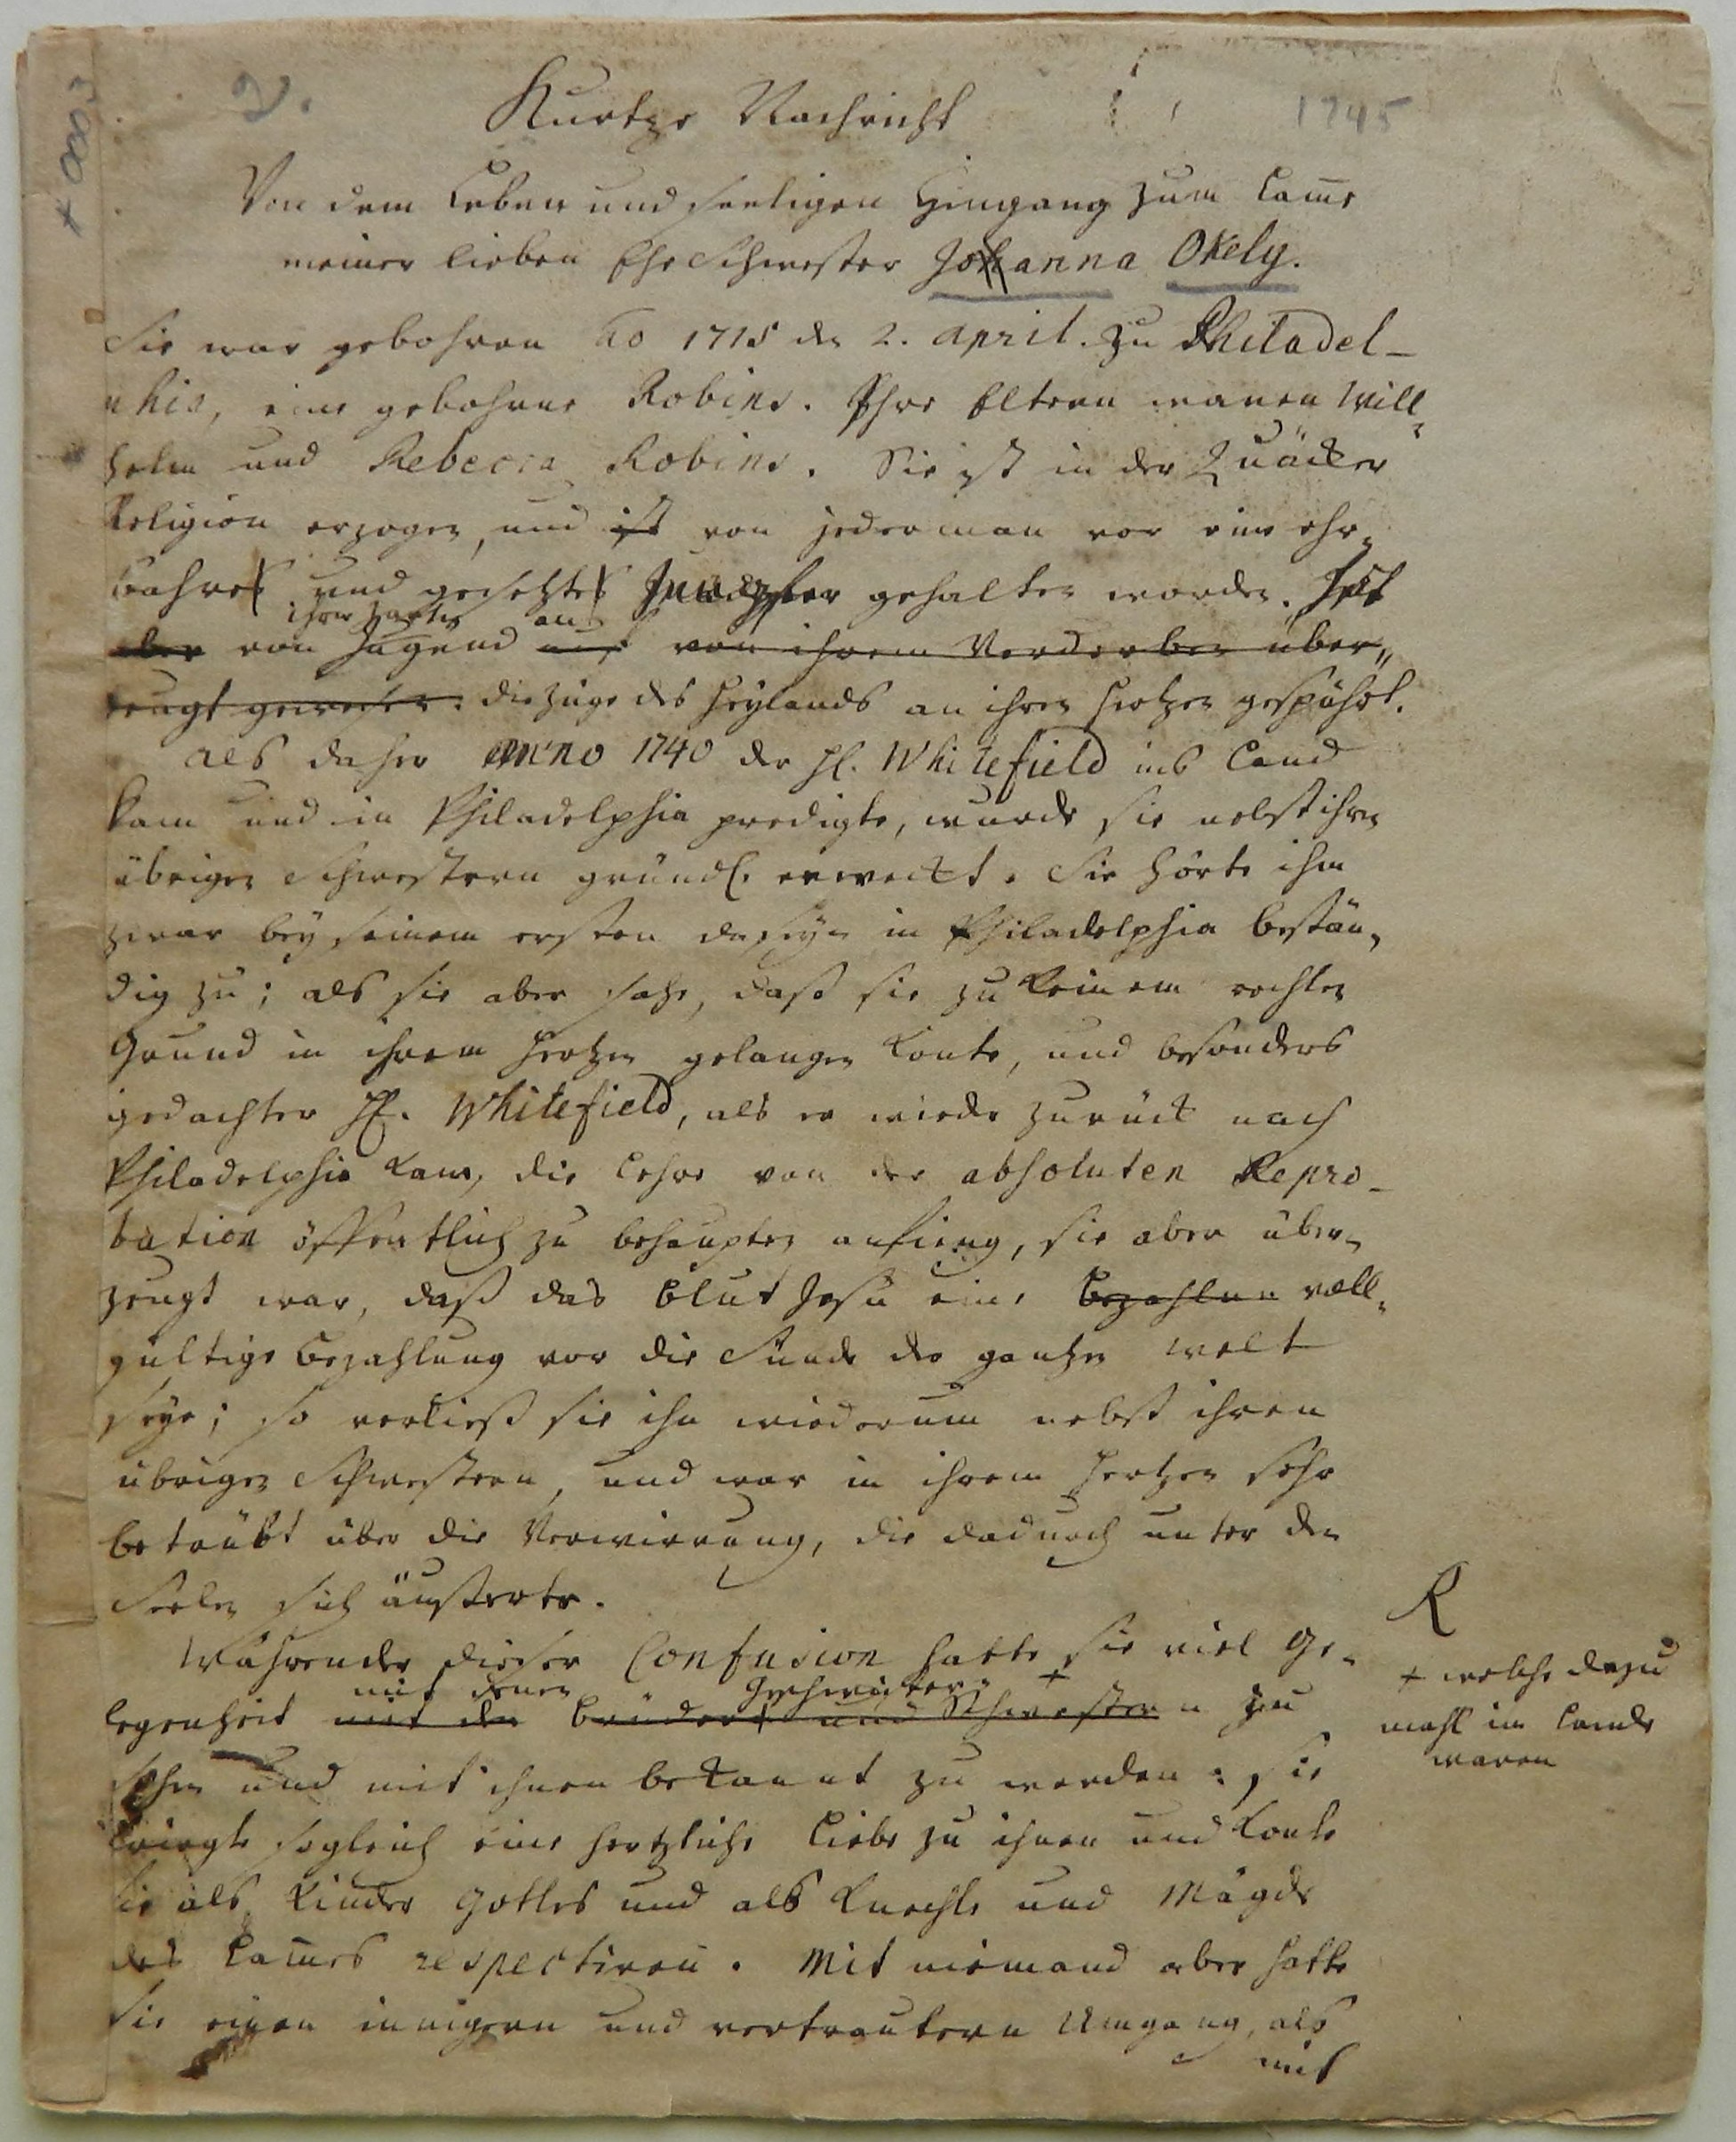 2.
1745
Kurtze Nachricht
Von dem Leben und seeligen Heimgang zum Lam̄e
meiner lieben Ehe Schwester Johanna Okely.
Sie war gebohren Ao 1715 den 2. April. zu Philadel-
phia, eine gebohrne Robins. Ihre Eltern waren Will-
helm und Rebecca Robins. Sie ist in der Quäcker
Religion erzogen, und ist von jederman vor eine ehr-
bahre und gesetzte Jungfer gehalten worden. Hat
ihrer zarten an
aber von Jugend auf von ihrem Verderben über-
zeugt gewesen. die Züge des Heylands an ihren Hertzen gespührt.
Als daher Anno 1740 der H. Whitefield ins Land
kam und in Philadelphia predigte, wurde sie nebst ihren
übrigen Schwestern gründl. erweckt. Sie hörte ihm
zwar bey seinem ersten daseyn in Philadelphia bestän-
dig zu; als sie aber sahe, daß sie zu keinem rechten
Grund in ihrem Hertzen gelangen konte, und besonders
gedachter H. Whitefield, als er wieder zurück nach
Philadelphia kam, die Lehre von der absoluten Repro-
bation öffentlich zu behaupten anfieng, sie aber über-
zeugt war, daß das Blut Jesu eine bezahlun voll-
gültige Bezahlung vor die Sünde der gantzen Welt
seye; so verließ sie ihn wiederum nebst ihren
übrigen Schwestern, und war in ihrem Hertzen sehr
betrübt über die Verwirrung, die dadurch unter den
Seelen sich äusserte.
Währender dieser Confusion hatte sie viel Ge-
mit denen Geschwistern +
legenheit mit den Brüdern und Schwestern zu
sehen und mit ihnen bekannt zu werden: sie
kriegte sogleich eine hertzliche Liebe zu ihnen und konte
sie als Kinder Gottes und als Knechte und Mägde
des Lam̄es respectiren. Mit niemand aber hatte
sie einen innigern und vertrautern Umgang, als
mit
R
+ welche dazu
mahl im Lande
waren